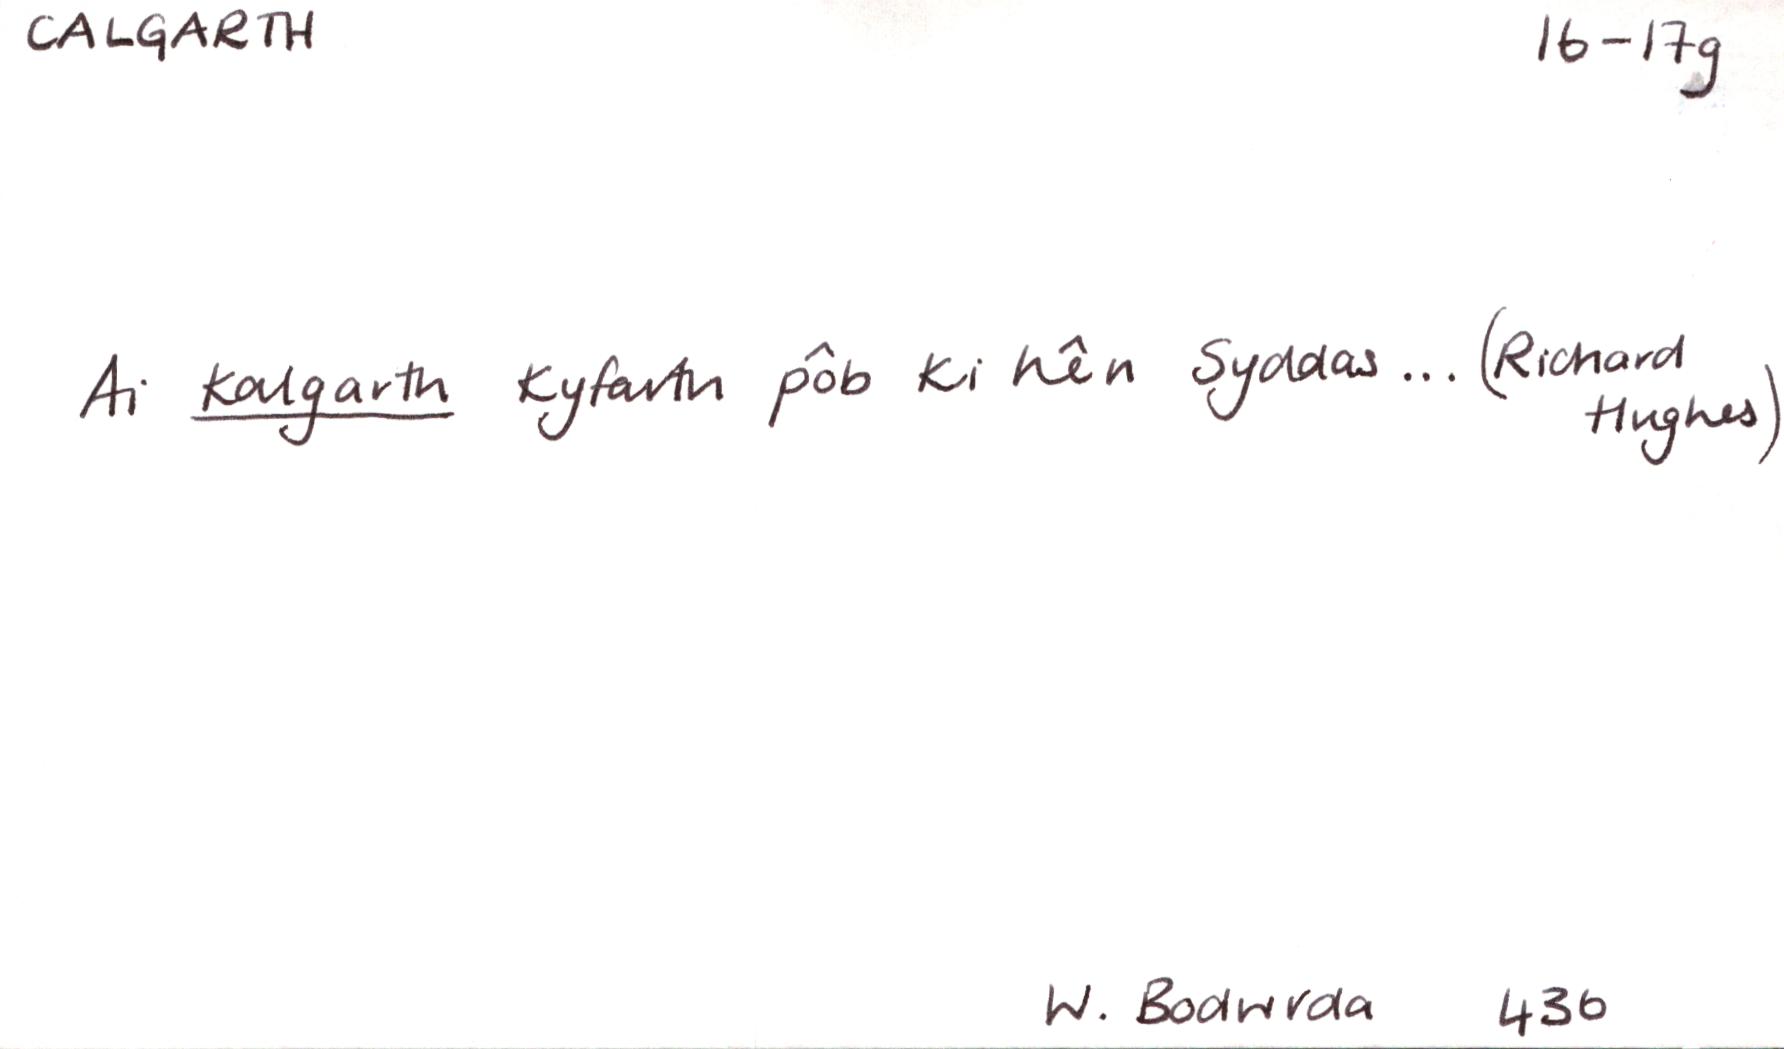 CALGARTH 16-17g
Ai kalgarth kyfarth pôb ki hên Syddas ... (Richard
Hughes)
W. Bodwrda 436